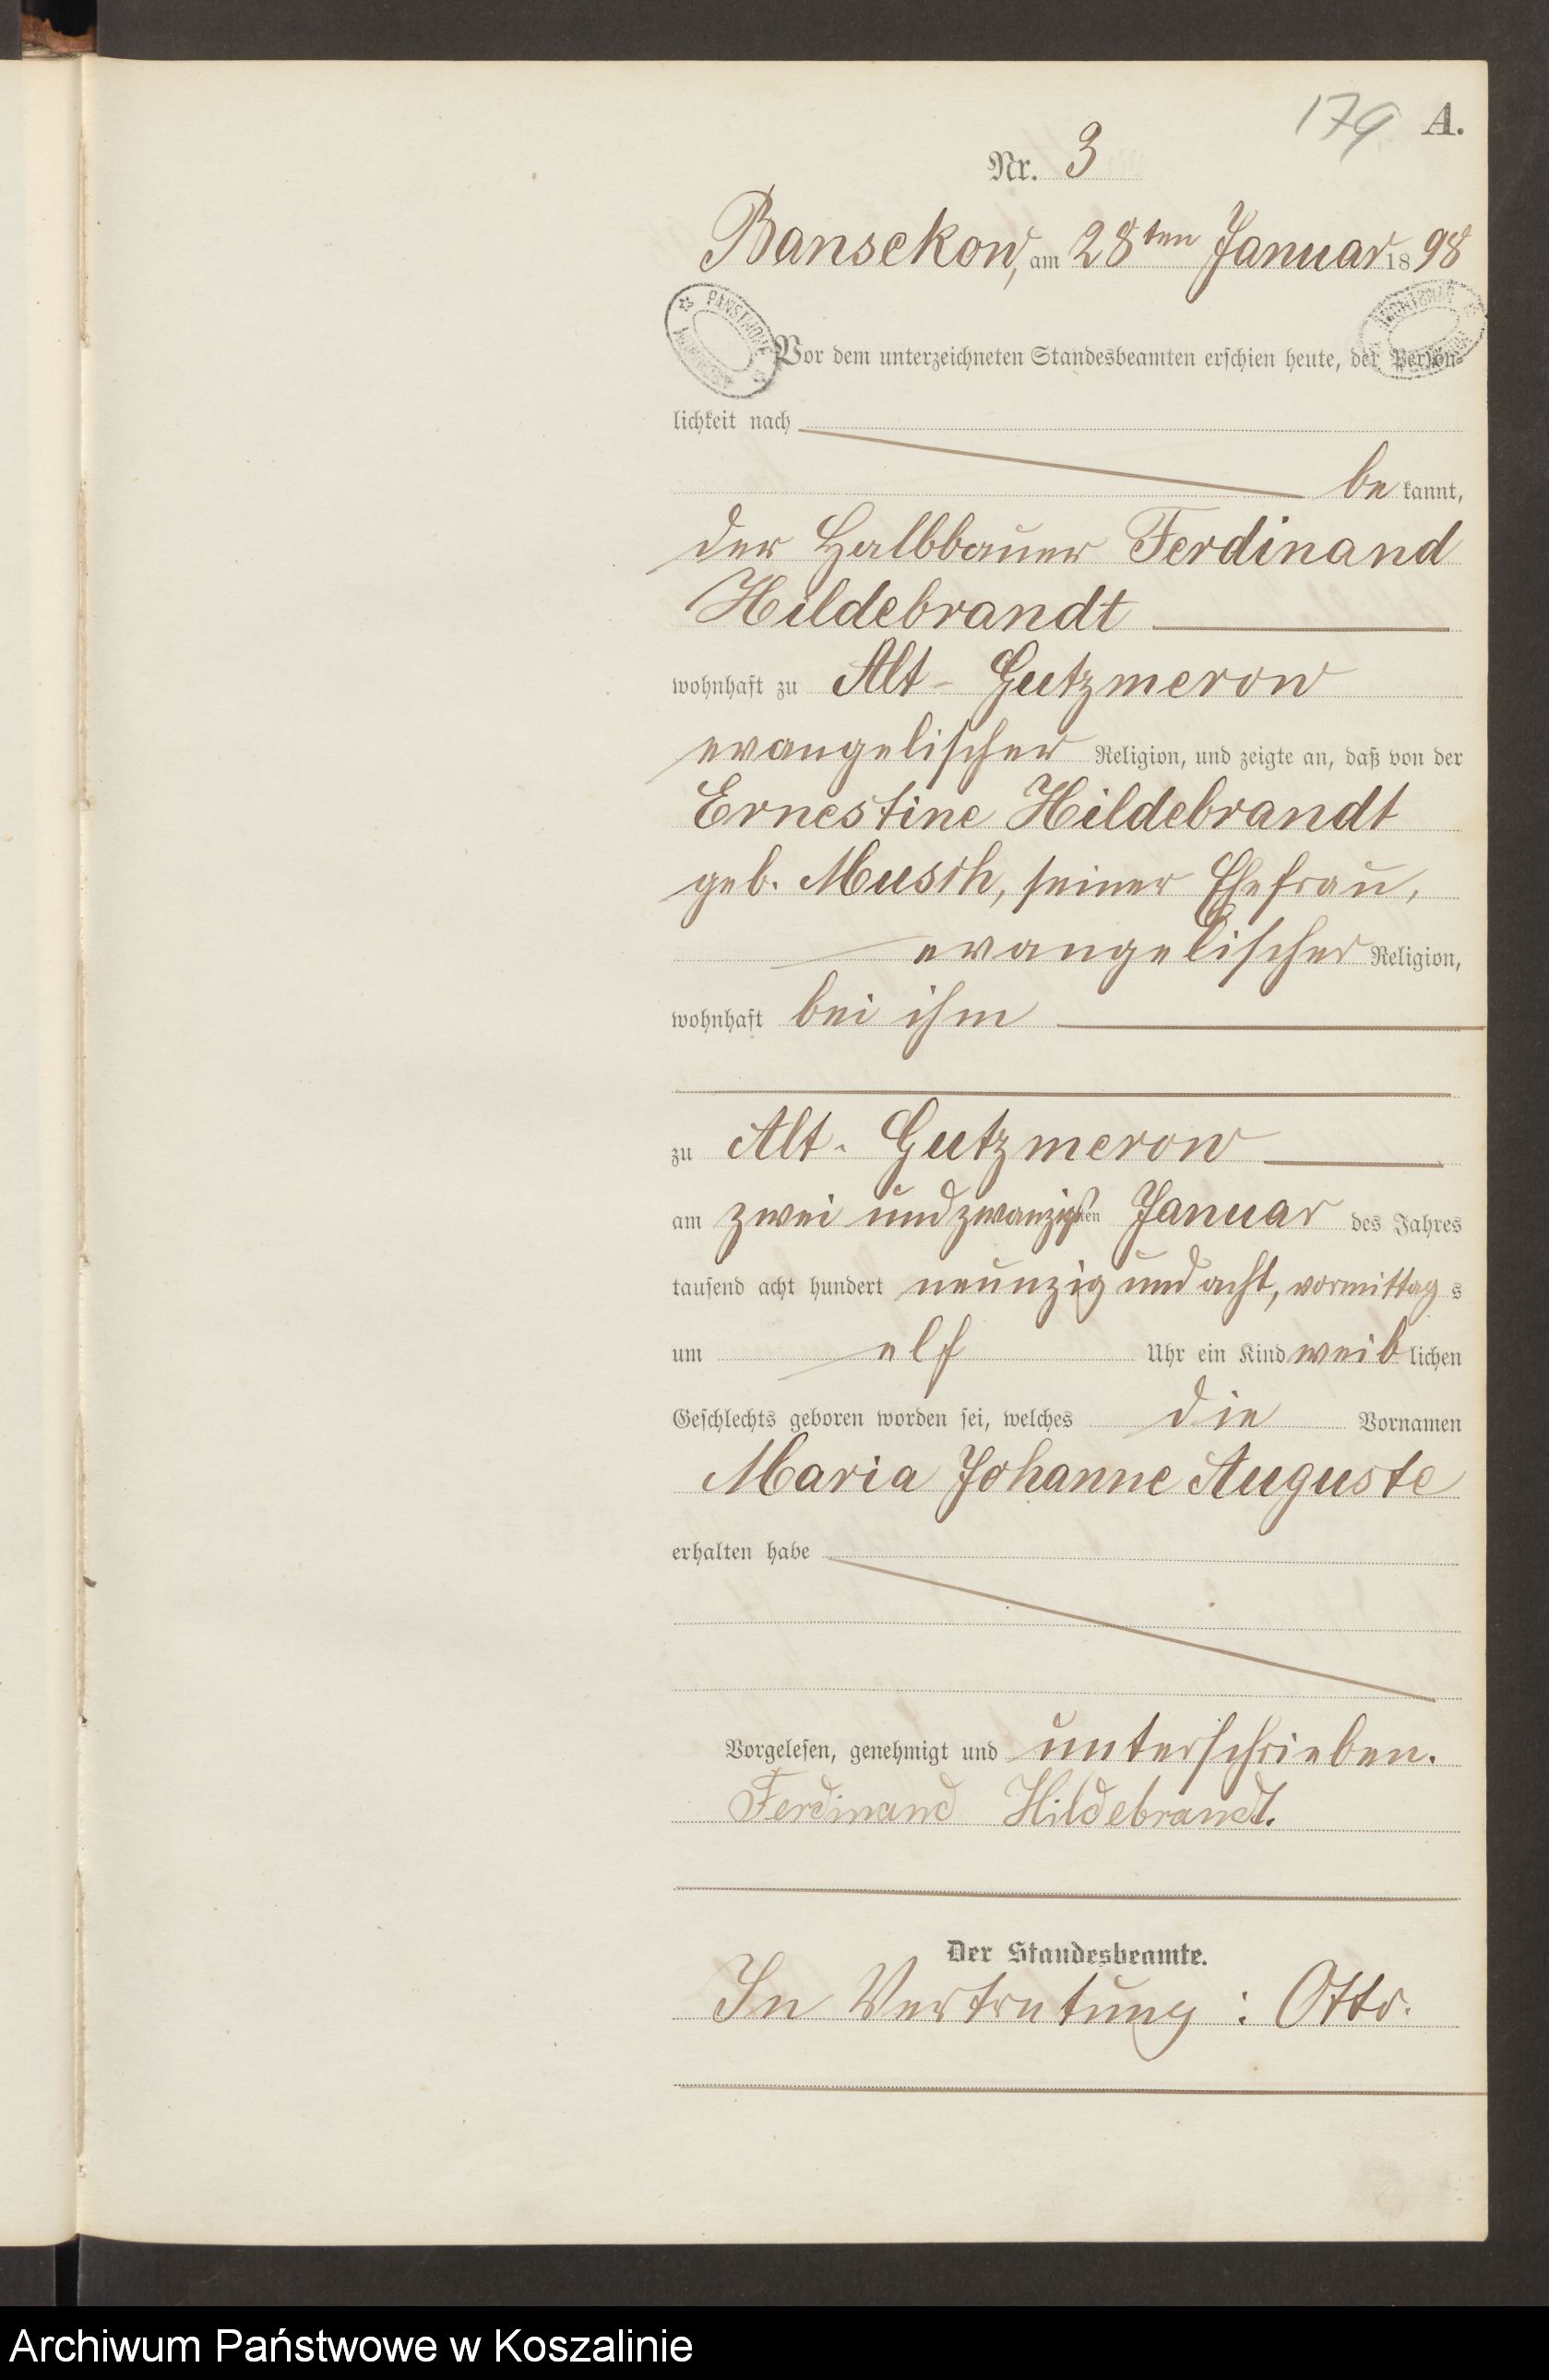 179 A.
Nr. 3
Bansekow, am 28ten Januar 1898
Vor dem unterzeichneten Standesbeamten erschien heute, der Persön-
lichkeit nach
be kannt,
der Halbbauer Ferdinand
Hildebrandt
wohnhaft zu Alt-Gutzmerow
evangelischer Religion, und zeigte an, daß von der
Ernestine Hildebrandt
geb. Musch, seiner Ehefrau,
evangelischer Religion,
wohnhaft bei ihm
zu Alt-Gutzmerow
am zwei und zwanzigsten Januar des Jahres
tausend acht hundert neunzig und acht, vormittag s
um elf Uhr ein Kind weib lichen
Geschlechts geboren worden sei, welches die Vornamen
Maria Johanne Auguste
erhalten habe
Vorgelesen, genehmigt und unterschrieben.
Ferdinand Hildebrandt.
Der Standesbeamte.
In Vertretung: Otto.
Archiwum Państwowe w Koszalinie